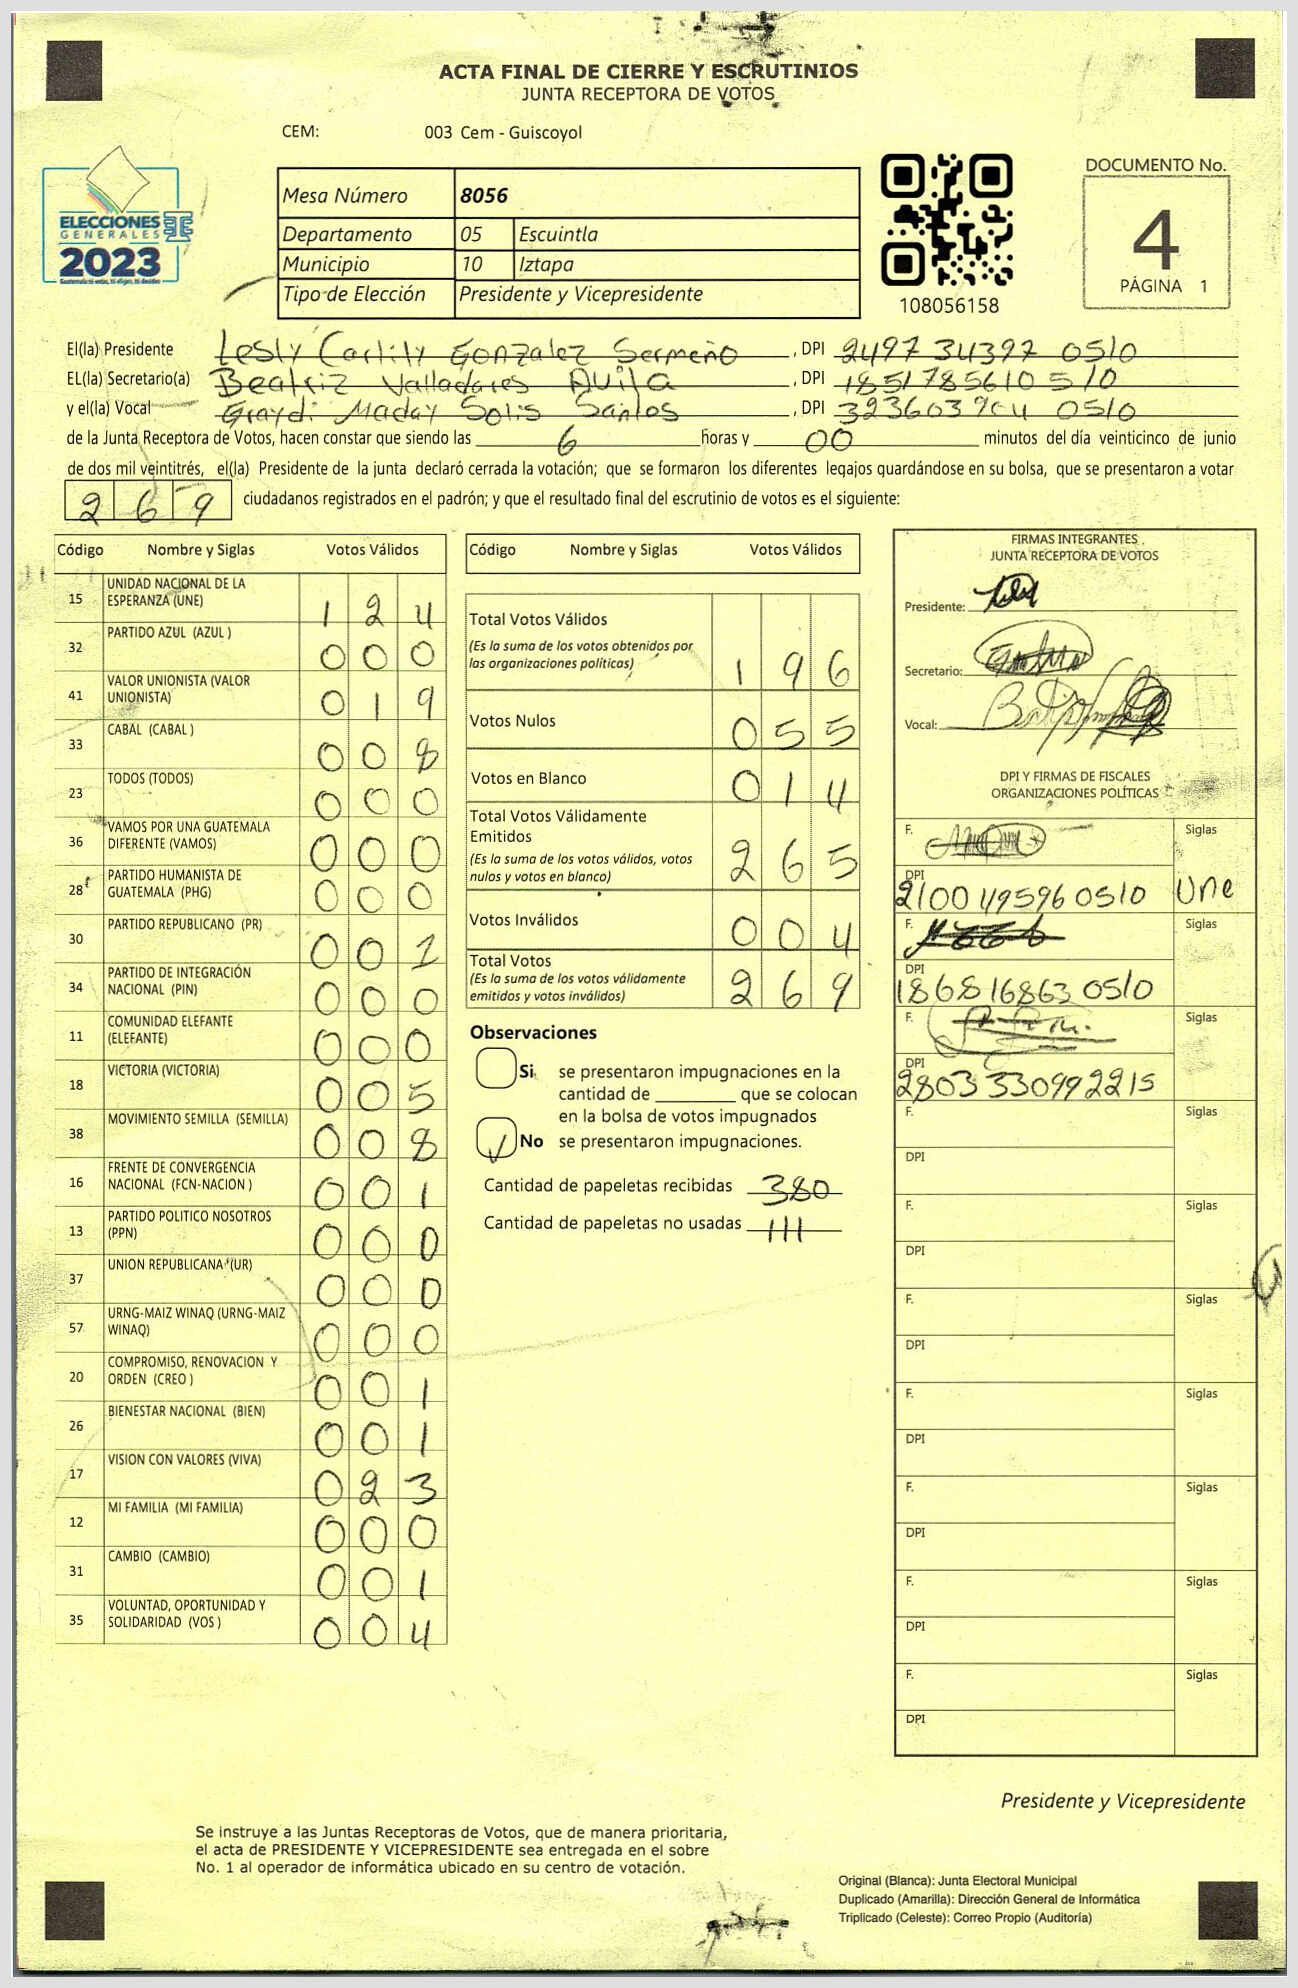 ACTA FINAL DE CIERRE Y ESCRUTINIOS
JUNTA RECEPTORA DE VOTOS
CEM: 003 Cem - Guiscoyol
ELECCIONES
GENERALES
2023
Mesa Número 8056
Departamento 05 Escuintla
Municipio 10 Iztapa
Tipo de Elección Presidente y Vicepresidente
108056158
DOCUMENTO No.
4
PÁGINA 1
El(la) Presidente Lesly Carlily Gonzalez Sermeño, DPI 2497 34397 0510
EL(la) Secretario(a) Beatriz Valladares Avila, DPI 1851785610510
y el(la) Vocal Graydi Maday Solis Santos, DPI 0510
de la Junta Receptora de Votos, hacen constar que siendo las 6 horas y 00 minutos del día veinticinco de junio
de dos mil veintitrés, el(la) Presidente de la junta declaró cerrada la votación; que se formaron los diferentes legajos guardándose en su bolsa, que se presentaron a votar
269 ciudadanos registrados en el padrón; y que el resultado final del escrutinio de votos es el siguiente:
Código Nombre y Siglas Votos Válidos
15 UNIDAD NACIONAL DE LA ESPERANZA (UNE) 1 2 4
32 PARTIDO AZUL (AZUL ) 0 0 0
41 VALOR UNIONISTA (VALOR UNIONISTA) 0 1 9
33 CABAL (CABAL ) 0 0 8
23 TODOS (TODOS) 0 0 0
36 VAMOS POR UNA GUATEMALA DIFERENTE (VAMOS) 0 0 0
28 PARTIDO HUMANISTA DE GUATEMALA (PHG) 0 0 0
30 PARTIDO REPUBLICANO (PR) 0 0 1
34 PARTIDO DE INTEGRACIÓN NACIONAL (PIN) 0 0 0
11 COMUNIDAD ELEFANTE (ELEFANTE) 0 0 0
18 VICTORIA (VICTORIA) 0 0 5
38 MOVIMIENTO SEMILLA (SEMILLA) 0 0 8
16 FRENTE DE CONVERGENCIA NACIONAL (FCN-NACION ) 0 0 1
13 PARTIDO POLITICO NOSOTROS (PPN) 0 0 0
37 UNION REPUBLICANA (UR) 0 0 0
57 URNG-MAIZ WINAQ (URNG-MAIZ WINAQ) 0 0 0
20 COMPROMISO, RENOVACION Y ORDEN (CREO ) 0 0 1
26 BIENESTAR NACIONAL (BIEN) 0 0 1
17 VISION CON VALORES (VIVA) 0 2 3
12 MI FAMILIA (MI FAMILIA) 0 0 0
31 CAMBIO (CAMBIO) 0 0 1
35 VOLUNTAD, OPORTUNIDAD Y SOLIDARIDAD (VOS ) 0 0 4
Código Nombre y Siglas Votos Válidos
Total Votos Válidos
(Es la suma de los votos obtenidos por
las organizaciones políticas) 1 9 6
Votos Nulos 0 5 5
Votos en Blanco 0 1 4
Total Votos Válidamente
Emitidos
(Es la suma de los votos válidos, votos
nulos y votos en blanco) 2 6 5
Votos Inválidos 0 0 4
Total Votos
(Es la suma de los votos válidamente
emitidos y votos inválidos) 2 6 9
Observaciones
Si se presentaron impugnaciones en la
cantidad de ________ que se colocan
en la bolsa de votos impugnados
No se presentaron impugnaciones.
Cantidad de papeletas recibidas 380
Cantidad de papeletas no usadas 111
FIRMAS INTEGRANTES
JUNTA RECEPTORA DE VOTOS
Presidente:
Secretario:
Vocal:
DPI Y FIRMAS DE FISCALES
ORGANIZACIONES POLÍTICAS
F. Siglas
DPI
2100 49596 0510 Une
F. Siglas
DPI
1868 16863 0510
F. Siglas
DPI
2803 33099 2215
F. Siglas
DPI
F. Siglas
DPI
F. Siglas
DPI
F. Siglas
DPI
F. Siglas
DPI
F. Siglas
DPI
F. Siglas
DPI
Presidente y Vicepresidente
Se instruye a las Juntas Receptoras de Votos, que de manera prioritaria,
el acta de PRESIDENTE Y VICEPRESIDENTE sea entregada en el sobre
No. 1 al operador de informática ubicado en su centro de votación.
Original (Blanca): Junta Electoral Municipal
Duplicado (Amarilla): Dirección General de Informática
Triplicado (Celeste): Correo Propio (Auditoría)